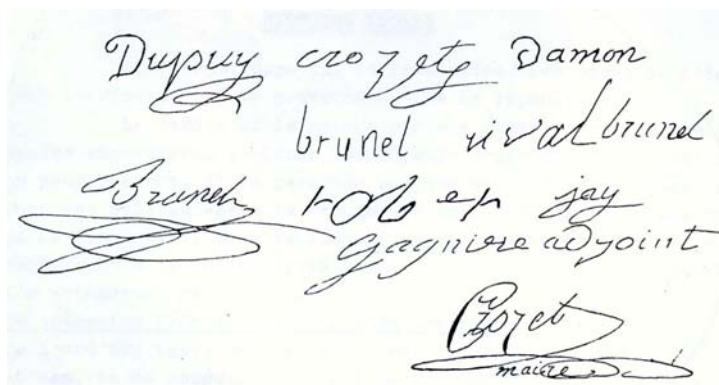 Dupuy crozet Damon
brunel rival brunel
Brunel rober jay
gagniere adjoint
Crozet
maire